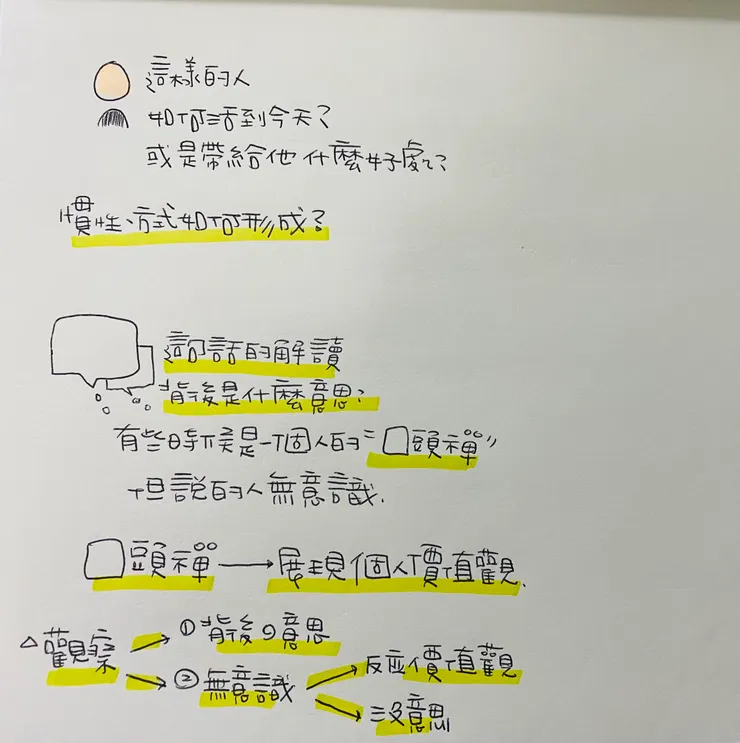 這樣的人
如何活到今天？
或是帶給他什麼好處？
慣性、方式如何形成？
這句話的解讀
背後是什麼意思？
有些時候是一個人的"口頭禪"
但說的人無意識.
口頭禪 → 展現個人價值觀.
△觀察 → ①背後の意思
→ ②無意識 → 反应價值觀
→ 沒意思